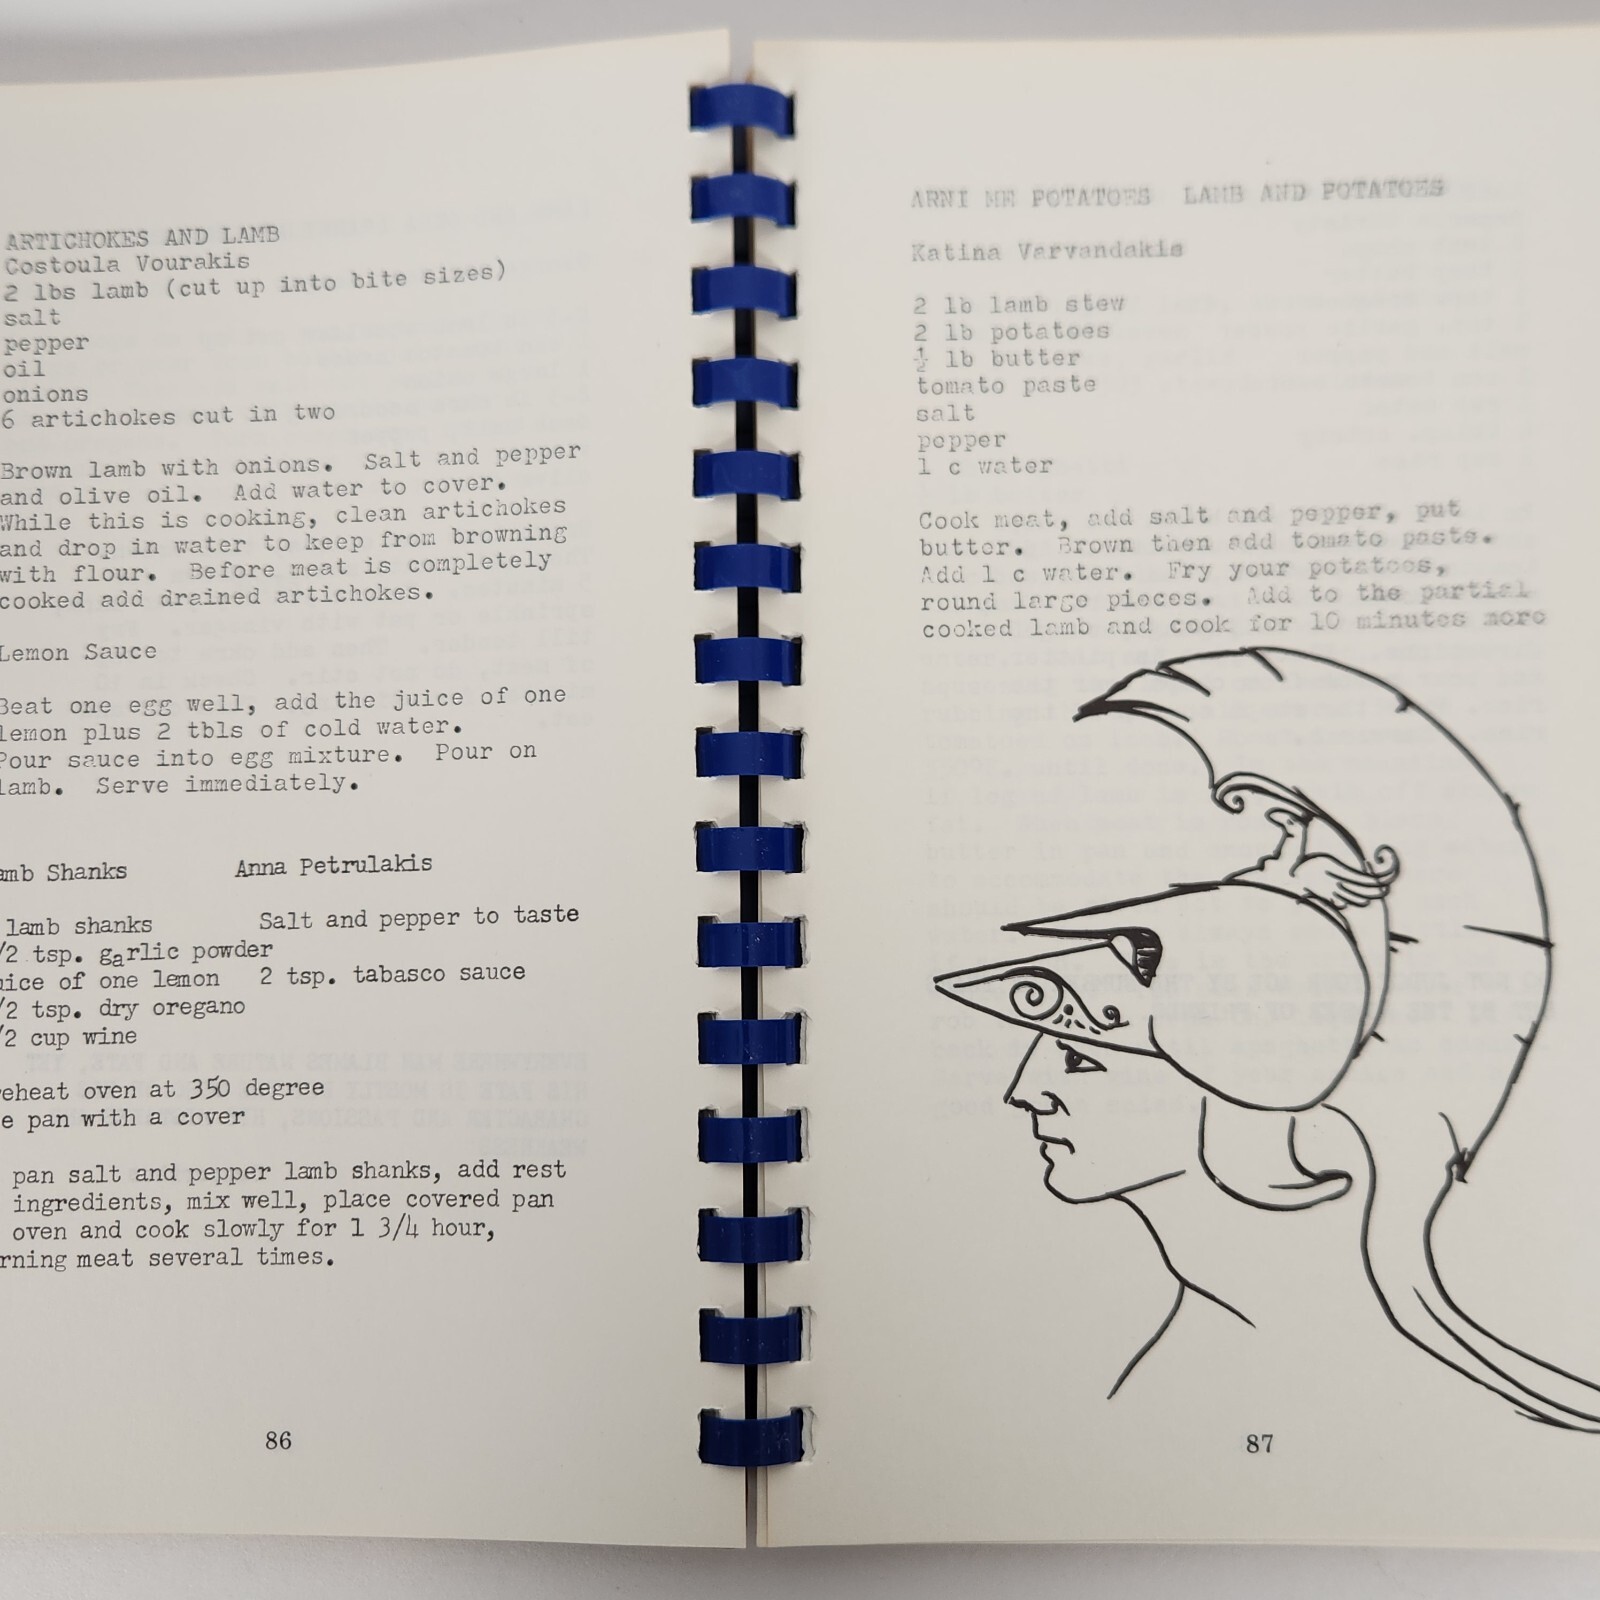 ARTICHOKES AND LAMB
Costoula Vourakis
2 lbs lamb (cut up into bite sizes)
salt
pepper
oil
onions
6 artichokes cut in two
Brown lamb with onions. Salt and pepper
and olive oil. Add water to cover.
While this is cooking, clean artichokes
and drop in water to keep from browning
with flour. Before meat is completely
cooked add drained artichokes.
Lemon Sauce
Beat one egg well, add the juice of one
lemon plus 2 tbls of cold water.
Pour sauce into egg mixture. Pour on
lamb. Serve immediately.
amb Shanks Anna Petrulakis
lamb shanks Salt and pepper to taste
/2 tsp. garlic powder
uice of one lemon 2 tsp. tabasco sauce
/2 tsp. dry oregano
/2 cup wine
reheat oven at 350 degree
e pan with a cover
pan salt and pepper lamb shanks, add rest
ingredients, mix well, place covered pan
oven and cook slowly for 1 3/4 hour,
rning meat several times.
86
ARNI ME POTATOES LAMB AND POTATOES
Katina Varvandakis
2 lb lamb stew
2 lb potatoes
½ lb butter
tomato paste
salt
pepper
1 c water
Cook meat, add salt and pepper, put
butter. Brown then add tomato paste.
Add 1 c water. Fry your potatoes,
round large pieces. Add to the partial
cooked lamb and cook for 10 minutes more
87